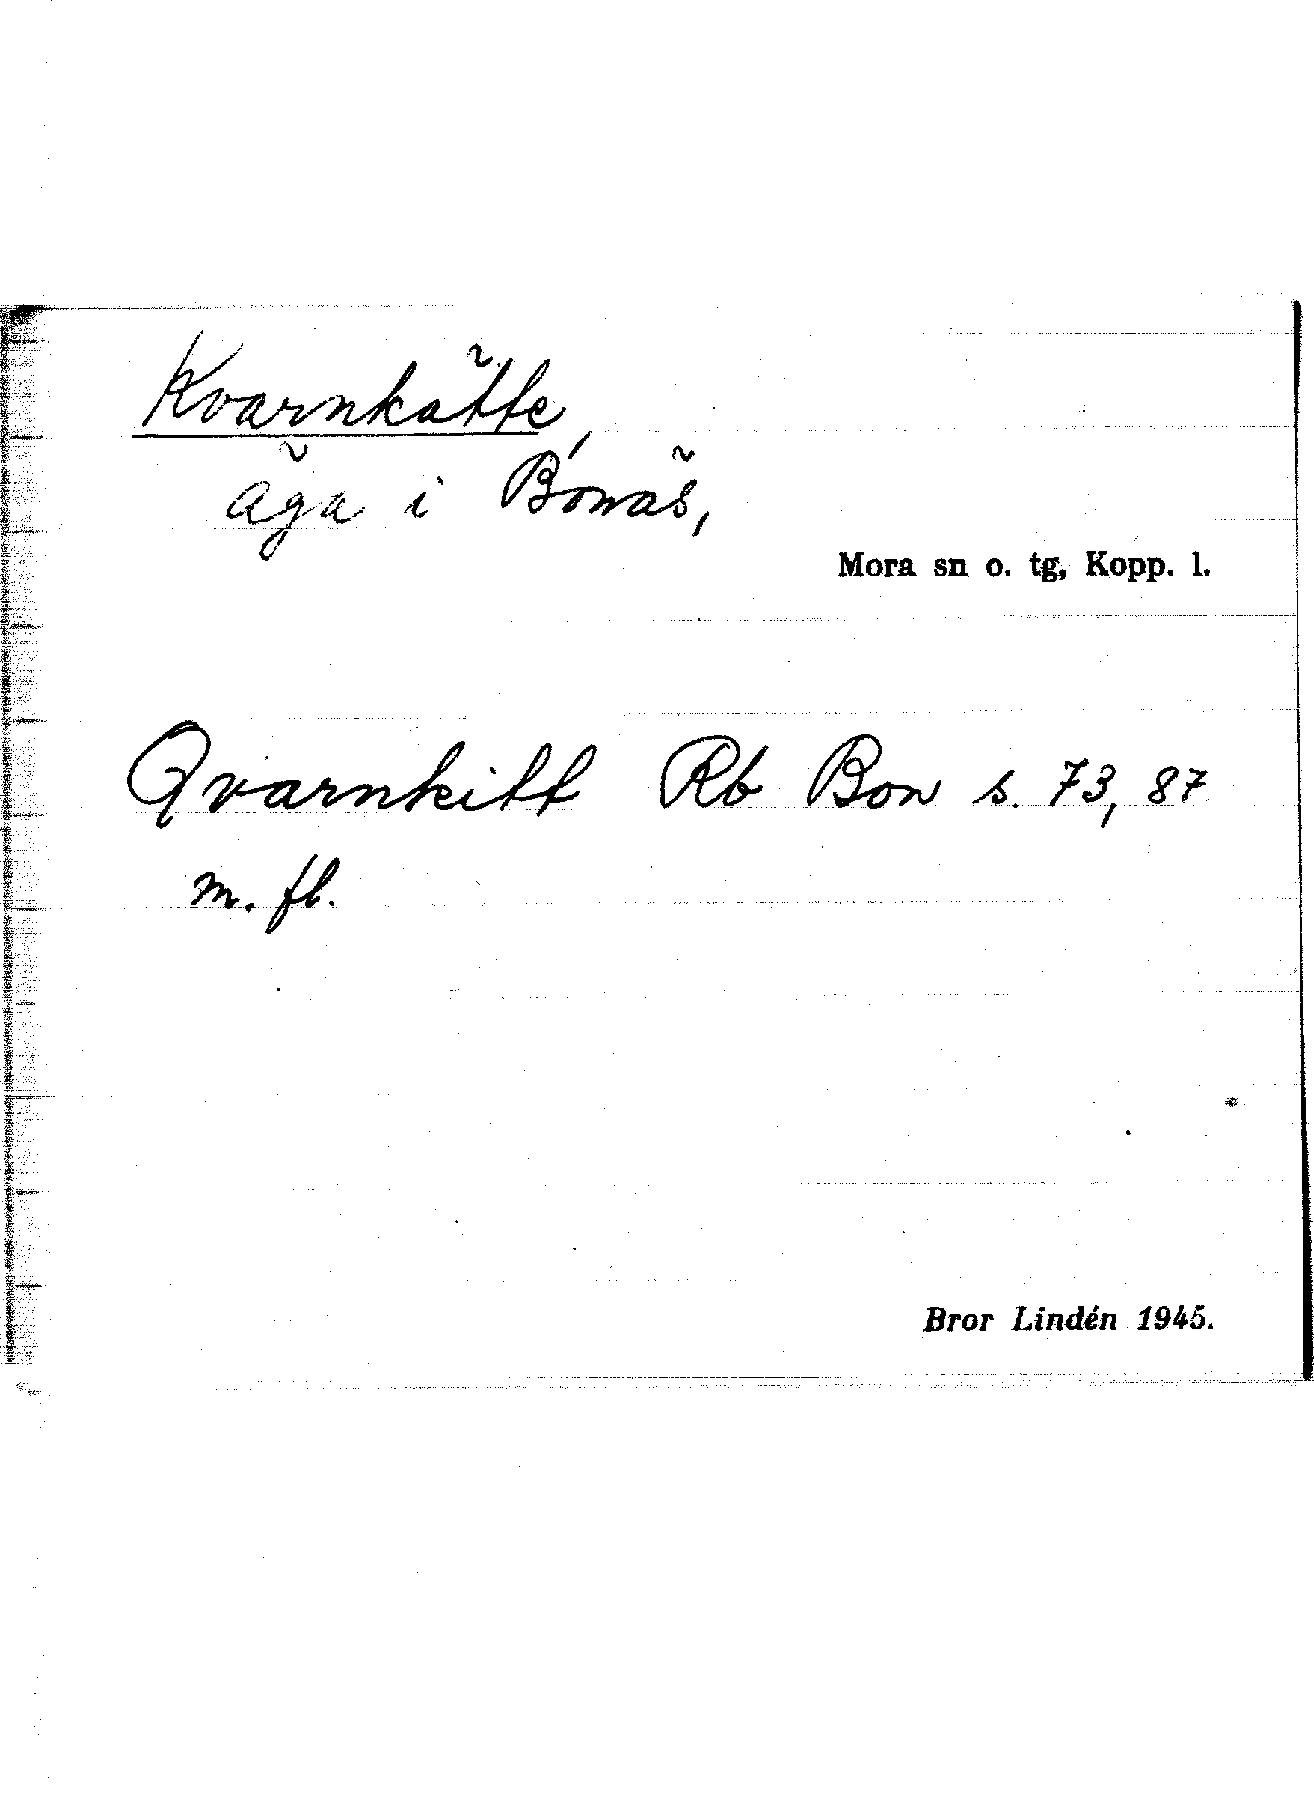 Kvarnkätte,
äga i Bónäs,
Mora sn o. tg, Kopp. l.
Qvarnkitt Rb Bon s. 73, 87
m. fl.
Bror Lindén 1945.